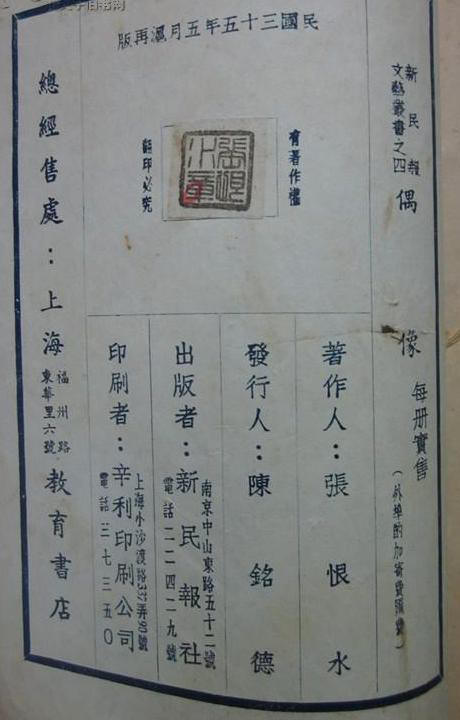 民國三十五年五月滬再版
新民報
文藝叢書之四
偶像
每册實售
(外埠酌加寄費匯費)
有著作權
張恨水章
翻印必究
著作人:張恨水
發行人:陳銘德
出版者:新民報社
南京中山東路五十二號
電話二二四二九號
印刷者:辛利印刷公司
上海小沙渡路337弄90號
電話三七三五〇
總經售處:上海
福州路
東華里六號
教育書店